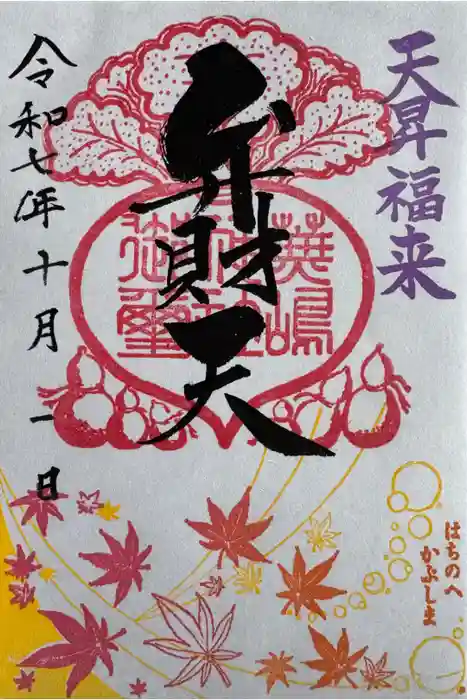 天昇福来
弁財天
蕪嶋神社御璽
令和七年十月一日
はちのへ
かぶしま